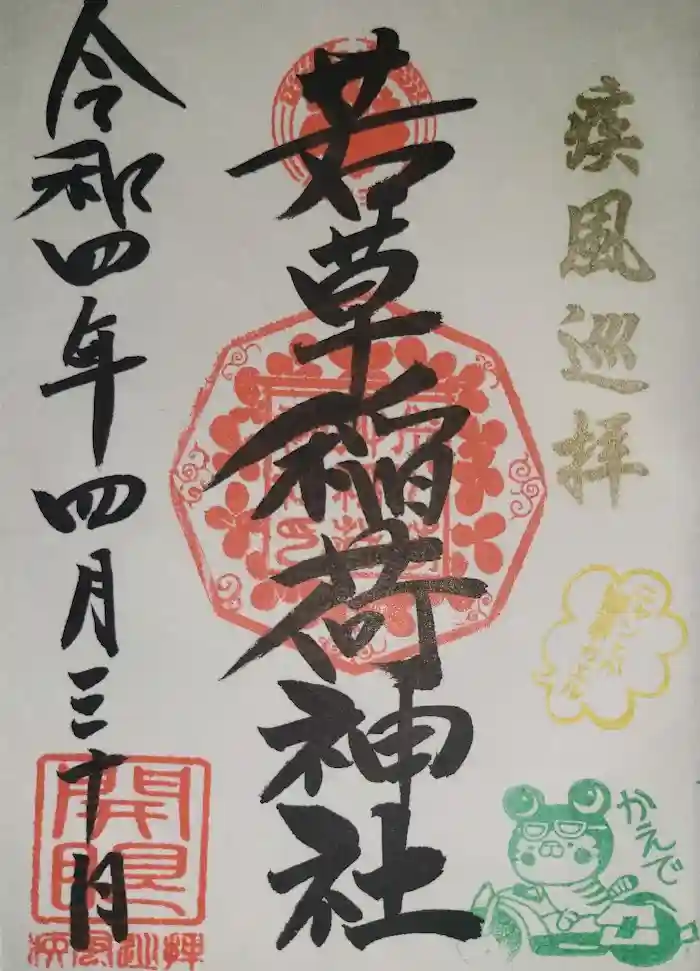 疾風巡拝
かえで
若草稲荷神社
令和四年四月三十日
開眼
疾風巡拝